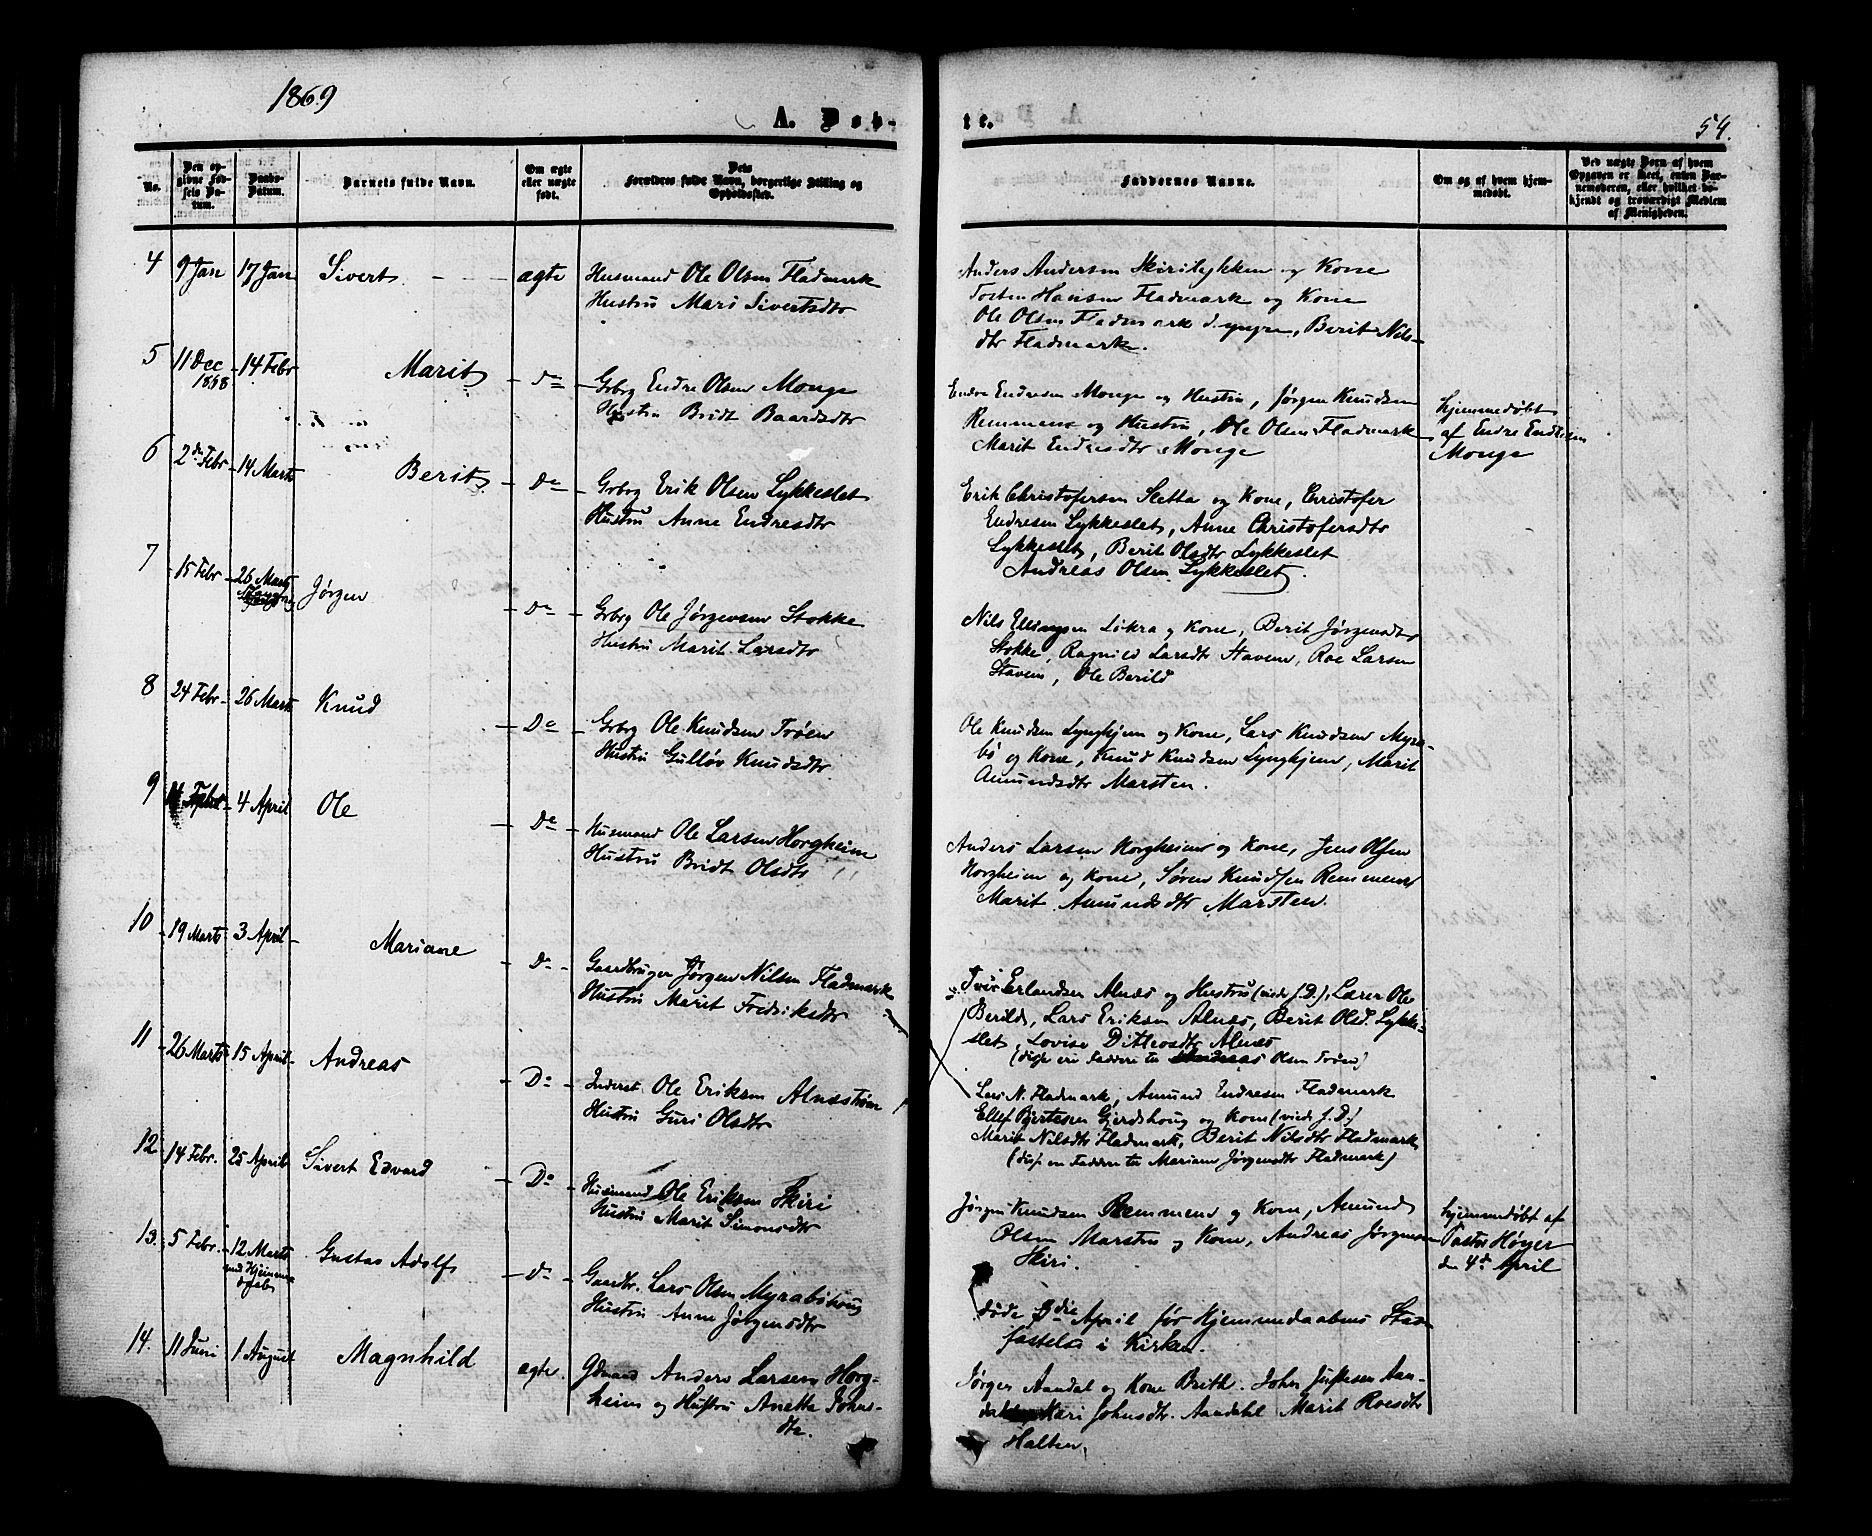 1869
A. Døb-
te.
54.
No.
Den op-
givne Fød-
sels Da-
tum.
Daabs-
Datum.
Barnets fulde Navn.
Om ægte
eller uægte
født.
Dets
Forældres fulde Navn, borgerlige Stilling og
Opholdssted.
Faddernes Navne.
Om og af hvem hjem-
medøbt.
Ved uægte Børn af hvem
Opgaven er skeet, enten Bar-
nemoderen, eller hvilket be-
kjendt og troværdigt Medlem
af Menigheden.
4 9 Jan 17 Jan Sivert ægte Husmand Ole Olsen Fladmark
Hustru Mari Sivertsdtr
Anders Andersen Skirilykken og Kone
Tosten Hansen Fladmark og Kone
Ole Olsen Fladmark d. yngre, Berit Nils-
dtr Fladmark.
5 11 Dec 1868 14 Febr Marit Do Grbrg Endre Olsen Monge
Hustru Bridt Baardsdtr
Endre Endresen Monge og Hustru, Jørgen Knudsen
Remmem og Hustru, Ole Olsen Fladmark
Marit Endresdtr Monge
hjemmedøbt
af Endre Endresen
Monge
6 2den Febr 14 Marts Berit Do Grbrg Erik Olsen Lykkeslet
Hustru Anne Endresdtr
Erik Christofersen Sletta og Kone, Christofer
Endresen Lykkeslet, Anne Christofersdtr
Lykkeslet, Berit Olsdtr Lykkeslet
Andreas Olsen Lykkeslet.
7 15 Febr 26 Marts Jørgen Do Grbrg Ole Jørgensen Stokke
Hustru Marit Larsdtr
Nils Ellingsen Likra og Kone, Berit Jørgensdtr
Stokke, Ragnild Larsdtr Staven, Roe Larsen
Staven, Ole Berild
8 24 Febr 26 Marts Knud Do Grbrg Ole Knudsen Trøen
Hustru Gulløv Knudsdtr
Ole Knudsen Lyngheim og Kone, Lars Knudsen Myra-
bø og Kone, Knud Knudsen Lyngheim, Marit
Amundsdtr Marsten.
9 Febr 4 April Ole Do Husmand Ole Larsen Horgheim
Hustru Bridt Olsdtr
Anders Larsen Horgheim og Kone, Jens Olsen
Horgheim og Kone, Søren Knudsen Remmem
Marit Amundsdtr Marsten.
10 19 Marts 3 April Mariane Do Gaardbruger Jørgen Nilsen Fladmark
Hustru Marit Fredriksdtr
Iver Erlandsen Alnæs og Hustru (vide f. D.), Lærer Ole
Berild, Lars Eriksen Alnæs, Berit Olsd. Lykke-
slet, Lovise Ditlevsdtr Alnæs
(disse ere Faddere til Andreas Olsen Trøen)
11 26 Marts 15 April Andreas Do Inderst Ole Eriksen Alnæstrøen
Hustru Guri Olsdtr
Lars N. Fladmark, Amund Endresen Fladmark
Ellef Bjertesen Gjerdshoug og Kone (vide f. D.)
Marit Nilsdtr Fladmark, Berit Nilsdtr Fladmark
(disse ere Faddere til Mariane Jørgensdtr Fladmark)
12 14 Febr. 25 April Sivert Edvard Do Husmand Ole Eriksen Skiri
Hustru Marit Simonsdtr
Jørgen Knudsen Remmem og Kone, Amund
Olsen Marsten og Kone, Andreas Jørgensen
Skiri.
hjemmedøbt af
Pastor Høyer
den 4de April
13. 5 Febr. 12 Marts
ved Hjemme-
daab
Gustav Adolf Do Gaardbr. Lars Olsen Myrabøhoug
Hustru Anne Jørgensdtr
døde 3die April før Hjemmedaabens Stad-
fæstelse i Kirken.
14. 11 Juni 1 August Magnhild ægte. Gdmand Anders Larsen Horg-
heim og Hustru Anetta Johns-
dtr.
Jørgen Aandal og Kone Brith. John Justesen Aan-
dal Kari Johnsdtr. Aandahl Marit Roesdtr
Halsen.